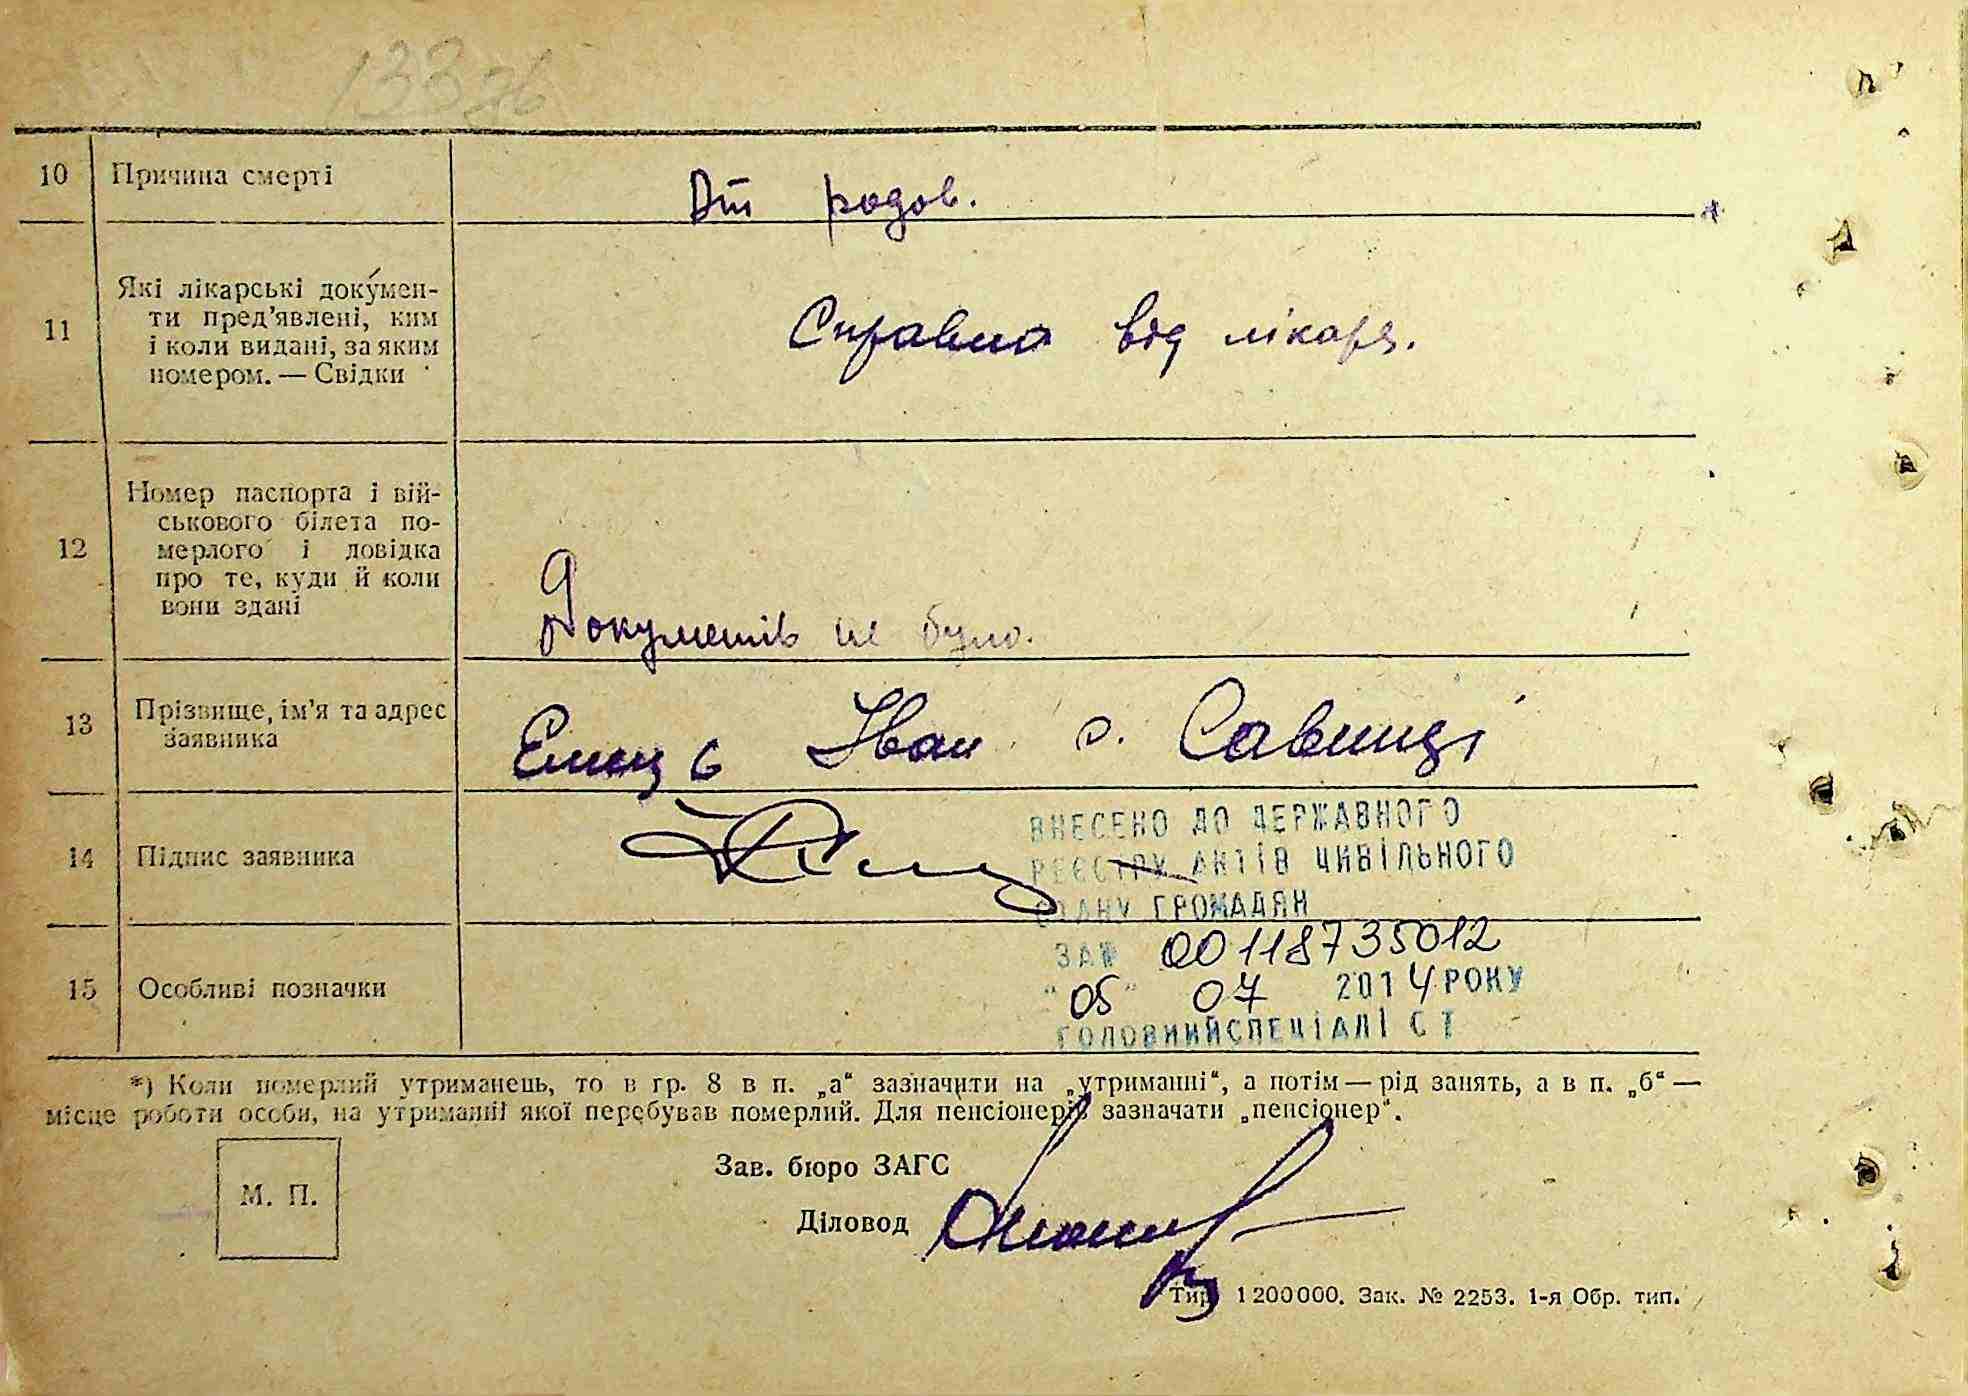 133зв
10 Причина смерті От родов.
11 Які лікарські докумен-
ти пред’явлені, ким
і коли видані, за яким
номером. — Свідки
Справка від лікаря.
12 Номер паспорта і вій-
ськового білета по-
мерлого і довідка
про те, куди й коли
вони здані
Документів не було.
13 Прізвище, ім’я та адрес
заявника
Емец Іван с. Савинці
14 Підпис заявника
ВНЕСЕНО ДО ДЕРЖАВНОГО
РЕЄСТРУ АКТІВ ЦИВІЛЬНОГО
СТАНУ ГРОМАДЯН
ЗА№ 00118735012
15 Особливі позначки
"05" 07 2014 РОКУ
ГОЛОВНИЙ СПЕЦІАЛІСТ
*) Коли померлий утриманець, то в гр. 8 в п. „а“ зазначити на „утриманні“, а потім — рід занять, а в п. „б“ —
місце роботи особи, на утриманні якої перебував померлий. Для пенсіонерів зазначати „пенсіонер“.
М. П.
Зав. бюро ЗАГС
Діловод
Тир. 1200000. Зак. № 2253. 1-я Обр. тип.